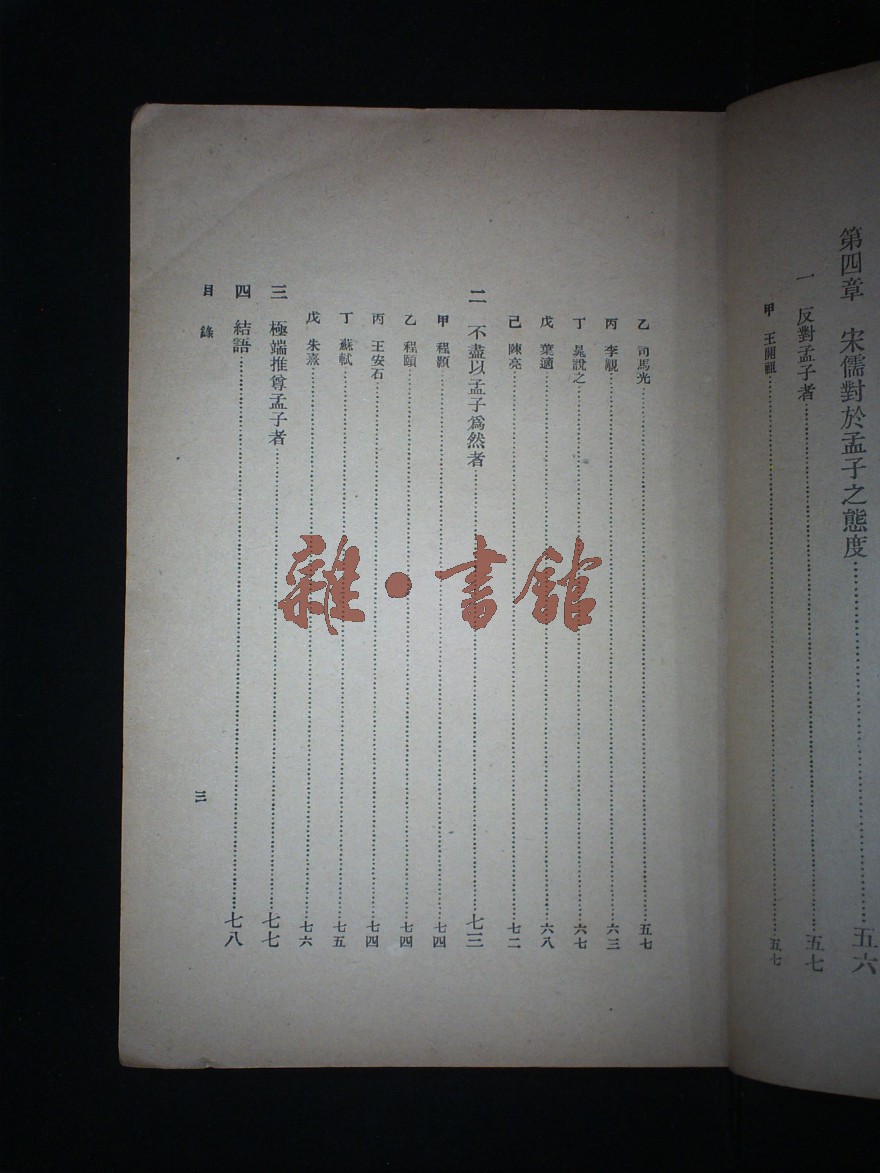 第四章 宋儒對於孟子之態度……五六
一 反對孟子者……五七
甲 王開祖……五七
乙 司馬光……五七
丙 李覯……六三
丁 晁說之……六七
戊 葉適……六八
己 陳亮……七二
二 不盡以孟子爲然者……七三
甲 程顥……七四
乙 程頤……七四
丙 王安石……七四
丁 蘇軾……七五
戊 朱熹……七六
三 極端推尊孟子者……七七
四 結語……七八
目錄
三
雜·書館